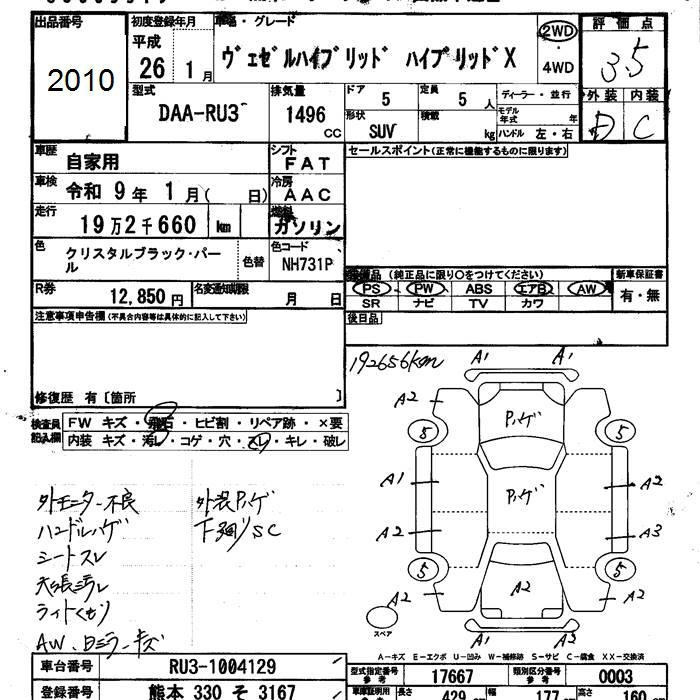 出品番号
2010
初度登録年月
平成
26 1月
車名・グレード
ヴェゼルハイブリッド ハイブリッドX
2WD
・
4WD
評価点
3.5
外装 内装
D C
型式
DAA-RU3
排気量
1496
CC
ドア
5
定員
5 人
形状
SUV
積載
kg
ディーラー・並行
モデル年式 年
ハンドル 左・右
車歴
自家用
シフト
FAT
車検
令和 9年 1月( 日)
冷房
AAC
走行
19万2千660 km
燃料
ガソリン
色
クリスタルブラック・パール
色替
色コード
NH731P
R券
12,850円
名変通知期限
月 日
セールスポイント(正常に機能するものに限ります)
(純正品に限り○をつけてください)
PS PW ABS エアB AW
SR ナビ TV カワ
新車保証書
有・無
後日品
注意事項申告欄(不具合内容等は具体的に記入して下さい)
修復歴 有〔箇所 〕
検査員記入欄
FW キズ・飛石・ヒビ割・リペア跡・×要
内装 キズ・汚レ・コゲ・穴・スレ・キレ・破レ
192656km
A1 A1
A2 A2
Pハゲ
5 5
A1 Pハゲ A2
A2 A3
5 5
A2 A2 A2
スペア
外モニター不良
ハンドルハゲ
シートスレ
天張汚レ
ライトくもり
AW、Bミラーキズ
外装Pハゲ
下廻りSC
A－キズ E－エクボ U－凹み W－補修跡 S－サビ C－腐食 XX－交換済
車台番号
RU3-1004129
登録番号
熊本 330 そ 3167
型式指定番号
参考
17667
類別区分番号
参考
0003
車庫証明用
長さ 429 cm 幅 177 cm 高さ 160 cm